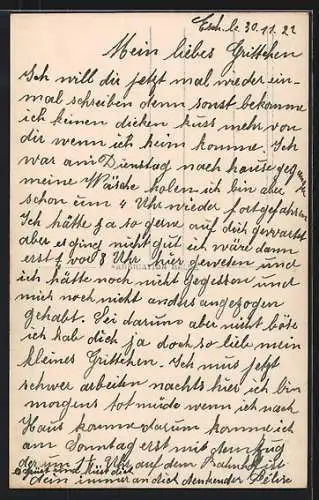 Esch. le 30.11.22
Mein liebes Grittchen
Ich will dir jetzt mal wieder ein-
mal schreiben denn sonst bekomme
ich keinen dicken kuss mehr von
dir wenn ich heim komme. Ich
war am Dienstag nach hause gegangen
meine Wäsche holen ich bin aber
schon um 4 Uhr wieder fortgefahren
Ich hätte ja so gerne auf dich gewartet
aber es ging nicht gut ich wäre dann
erst 1/4 vor 8 Uhr hier gewesen und
ich hätte noch nicht Gegessen und
mich noch nicht anders angezogen
gehabt. Sei darum aber nicht böse
ich hab dich ja doch so lieb mein
kleines Grittchen. Ich mus jetzt
schwer arbeiten nachts hier ich bin
morgens tot müde wenn ich nach
Haus komme darum komme ich
am Sonntag erst mit dem Zug
der um Uhr auf dem Bahnhof ist
Gruss und Kuss
dein immer an dich denkender